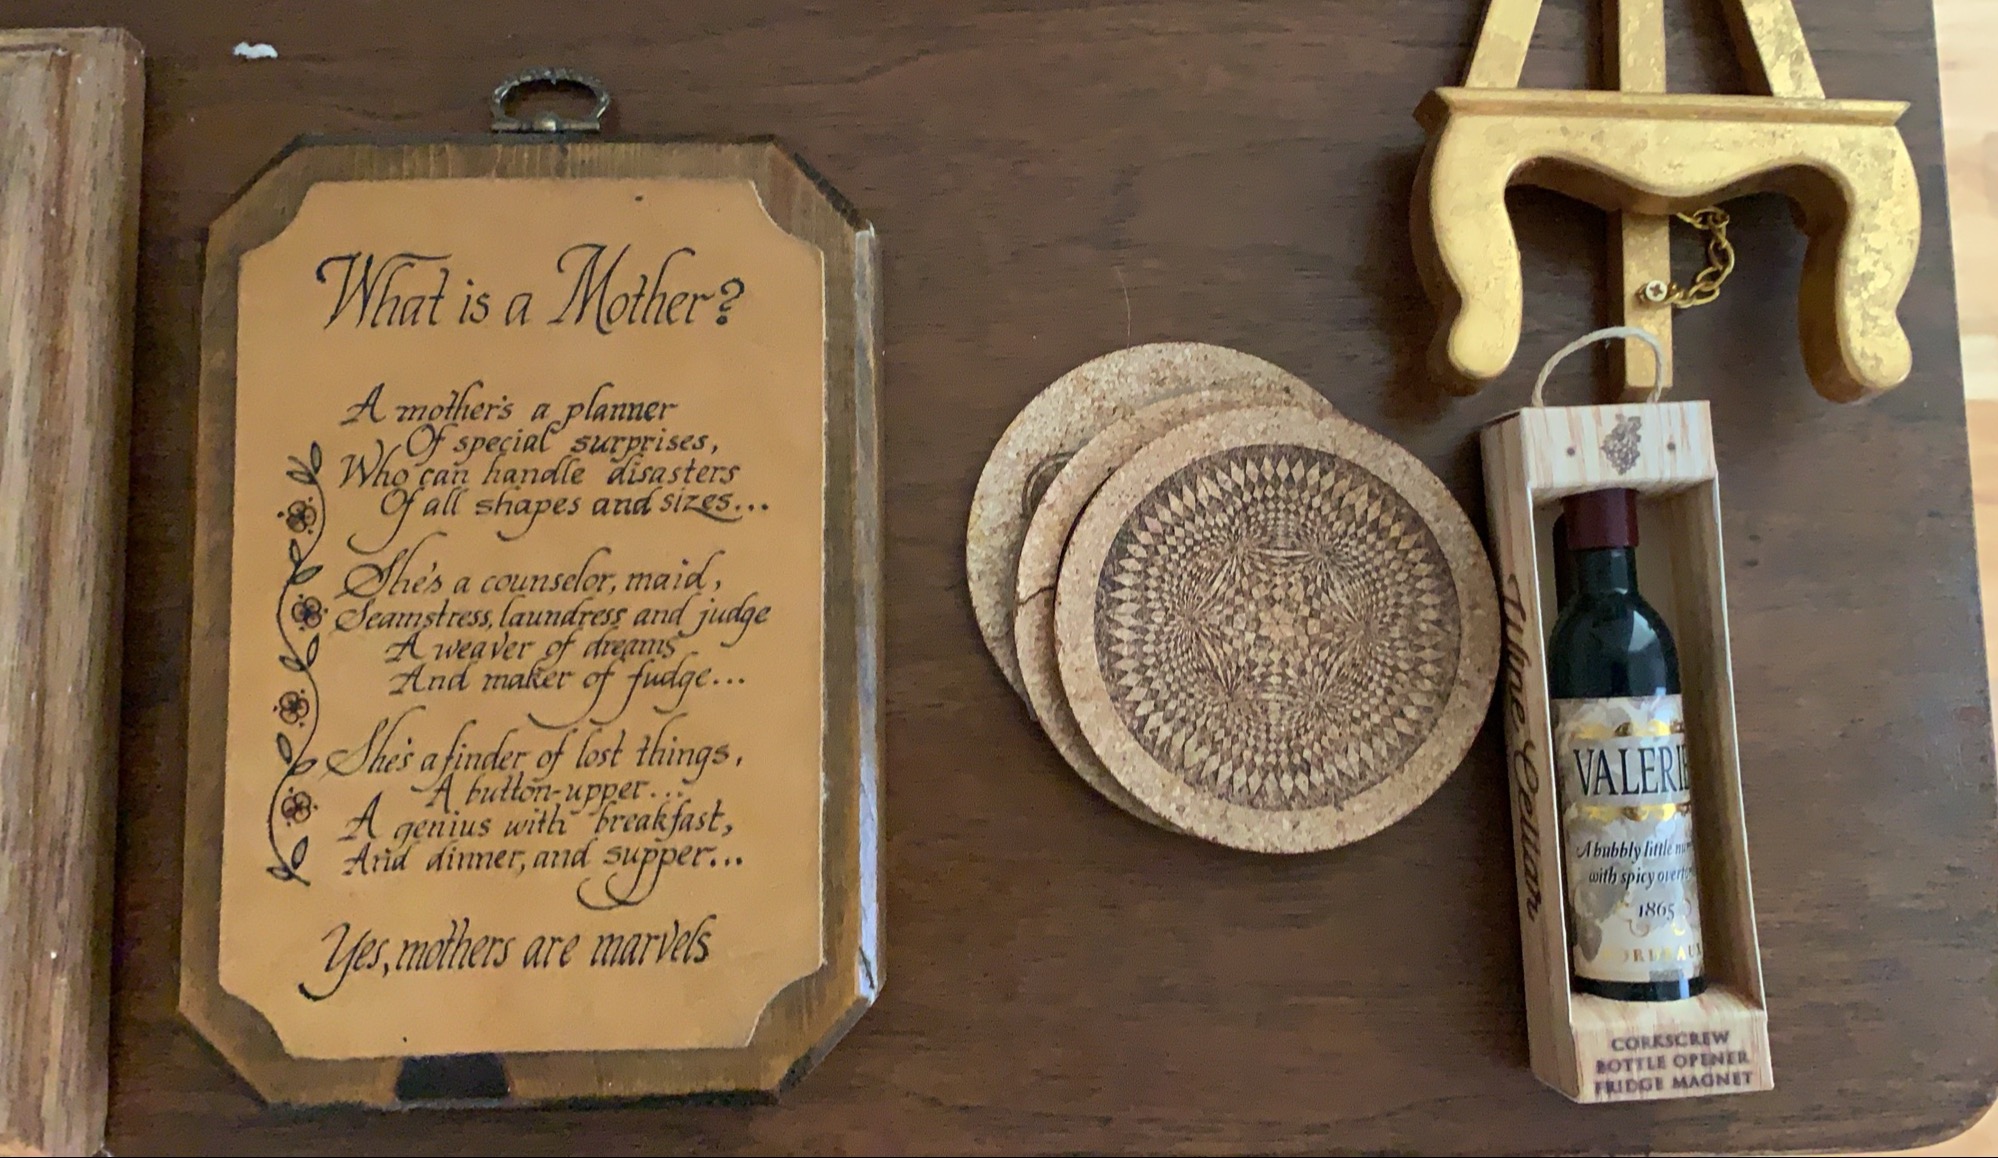 What is a Mother?
A mother's a planner
Of special surprises,
Who can handle disasters
Of all shapes and sizes...
She's a counselor, maid,
Seamstress, laundress and judge
A weaver of dreams
And maker of fudge...
She's a finder of lost things,
A button-upper...
A genius with breakfast,
And dinner, and supper...
Yes, mothers are marvels
Wine Cellar
VALERIE
A bubbly little
with spicy
1865
CORKSCREW
BOTTLE OPENER
FRIDGE MAGNET